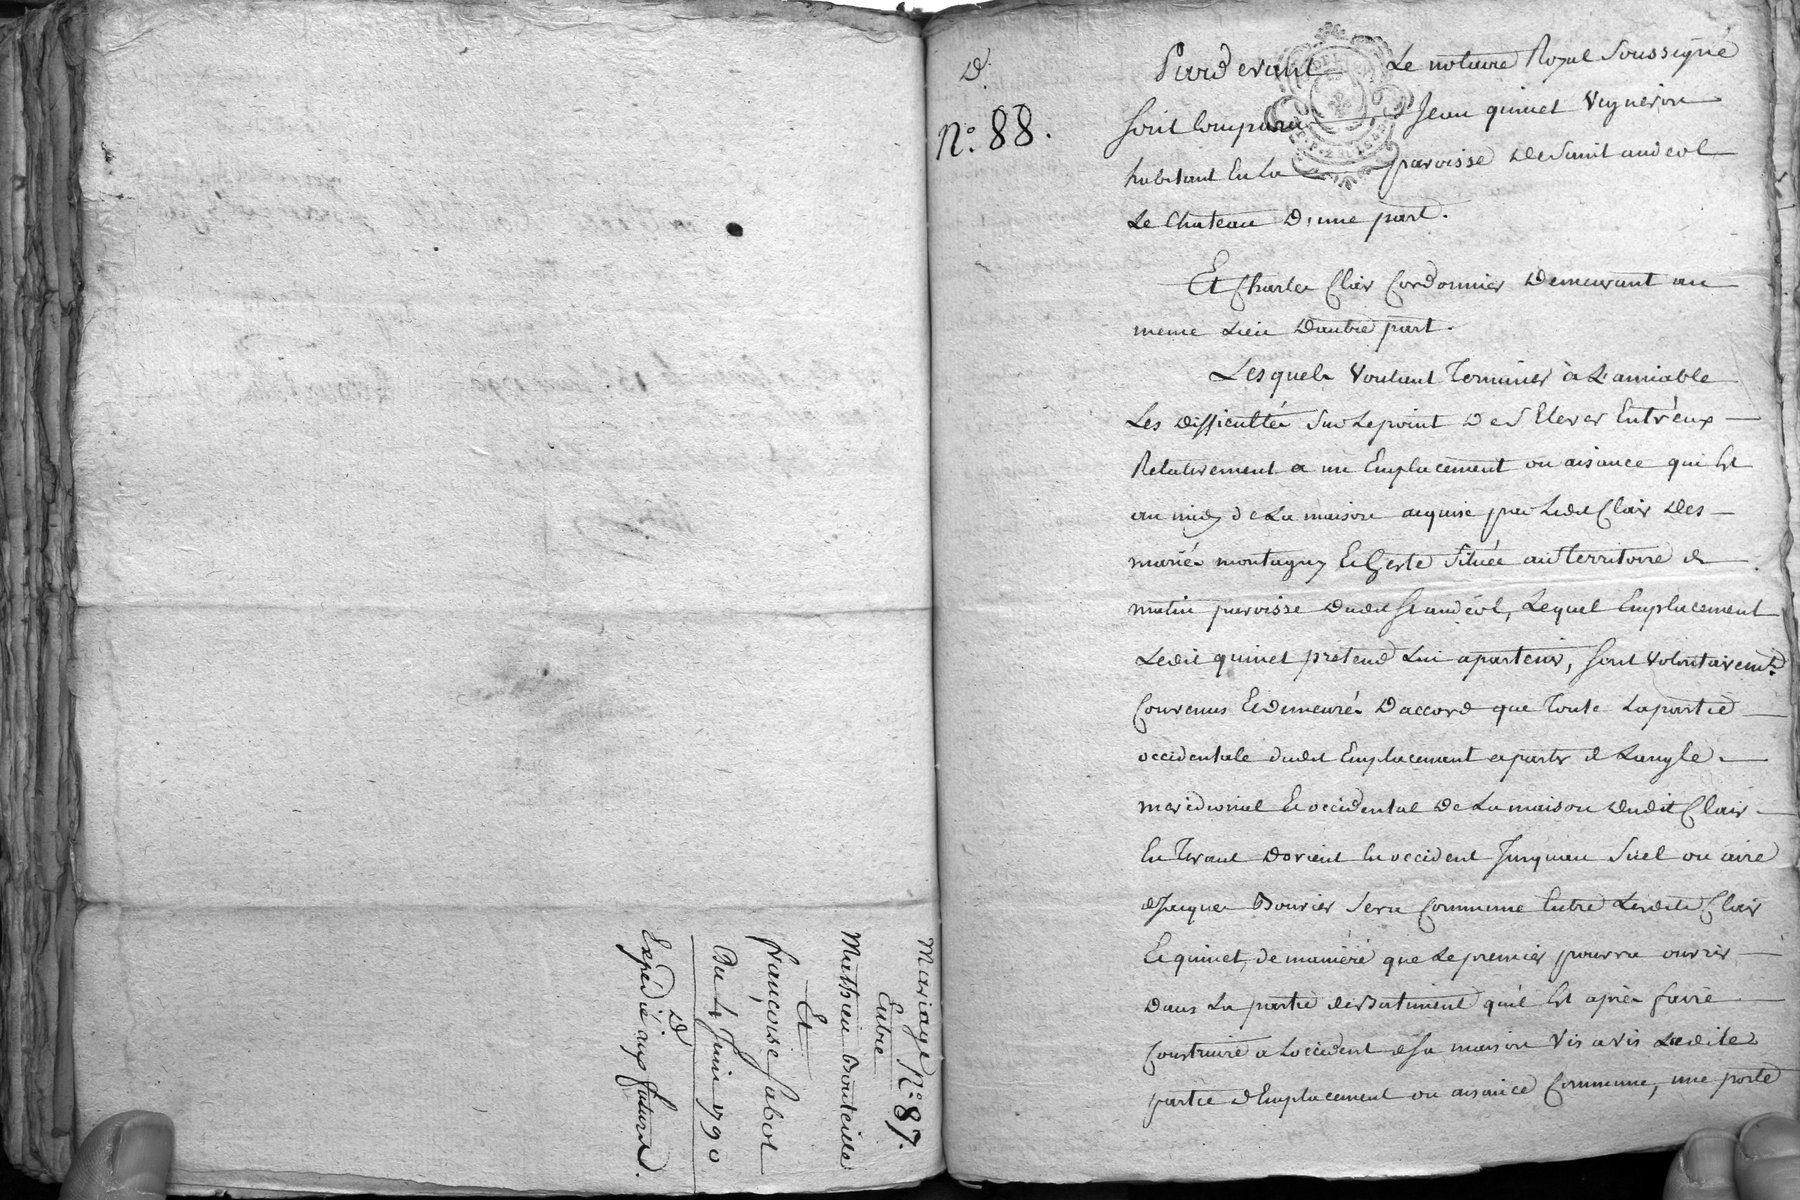 Mariage N.° 87.
Entre
Mathieu Bouteille
Et
françoise Sabot
Du 4 Juin 1790
D
Expédié aux futurs.
D.
N.° 88.
Pardevant Le notaire Royal Soussigné
Sont Comparu Jean quinet Vigneron
habitant En La paroisse De Saint andeol
Le Chateau D'une part.
Et Charles Clair Cordonnier Demeurant au
meme Lieu Dautre part.
Lesquels Voulant Terminer à L'amiable
Les difficultés Sur Le point De S Elever Entr'eux
Relativement a un Emplacement ou aisance qui Est
au midy de La maison acquise par Ledit Clair Des
mariés montagny Et Gerte Située au Territoire de
matin paroisse Dudit St andéol, Lequel Emplacement
Ledit quinet prétend Lui apartenir, Sont Volontairemt.
Convenus Et Demeurés D'accord que Toute La partie
occidentale dudit Emplacement a partir de Langle
meridional Et occidental De La maison Dudit Clair
En Tirant Dorient En occident Jusquau Suel ou aire
de Jacques Bourier Sera Commune Entre Lesdits Clair
Et quinet, de maniéré que Le premier pourra ouvrir
Dans La partie de Batiment qu'il Est après faire
Construire a Loccident de Sa maison Vis a Vis Ladite
partie d'Emplacement ou aisance Commune, une porte